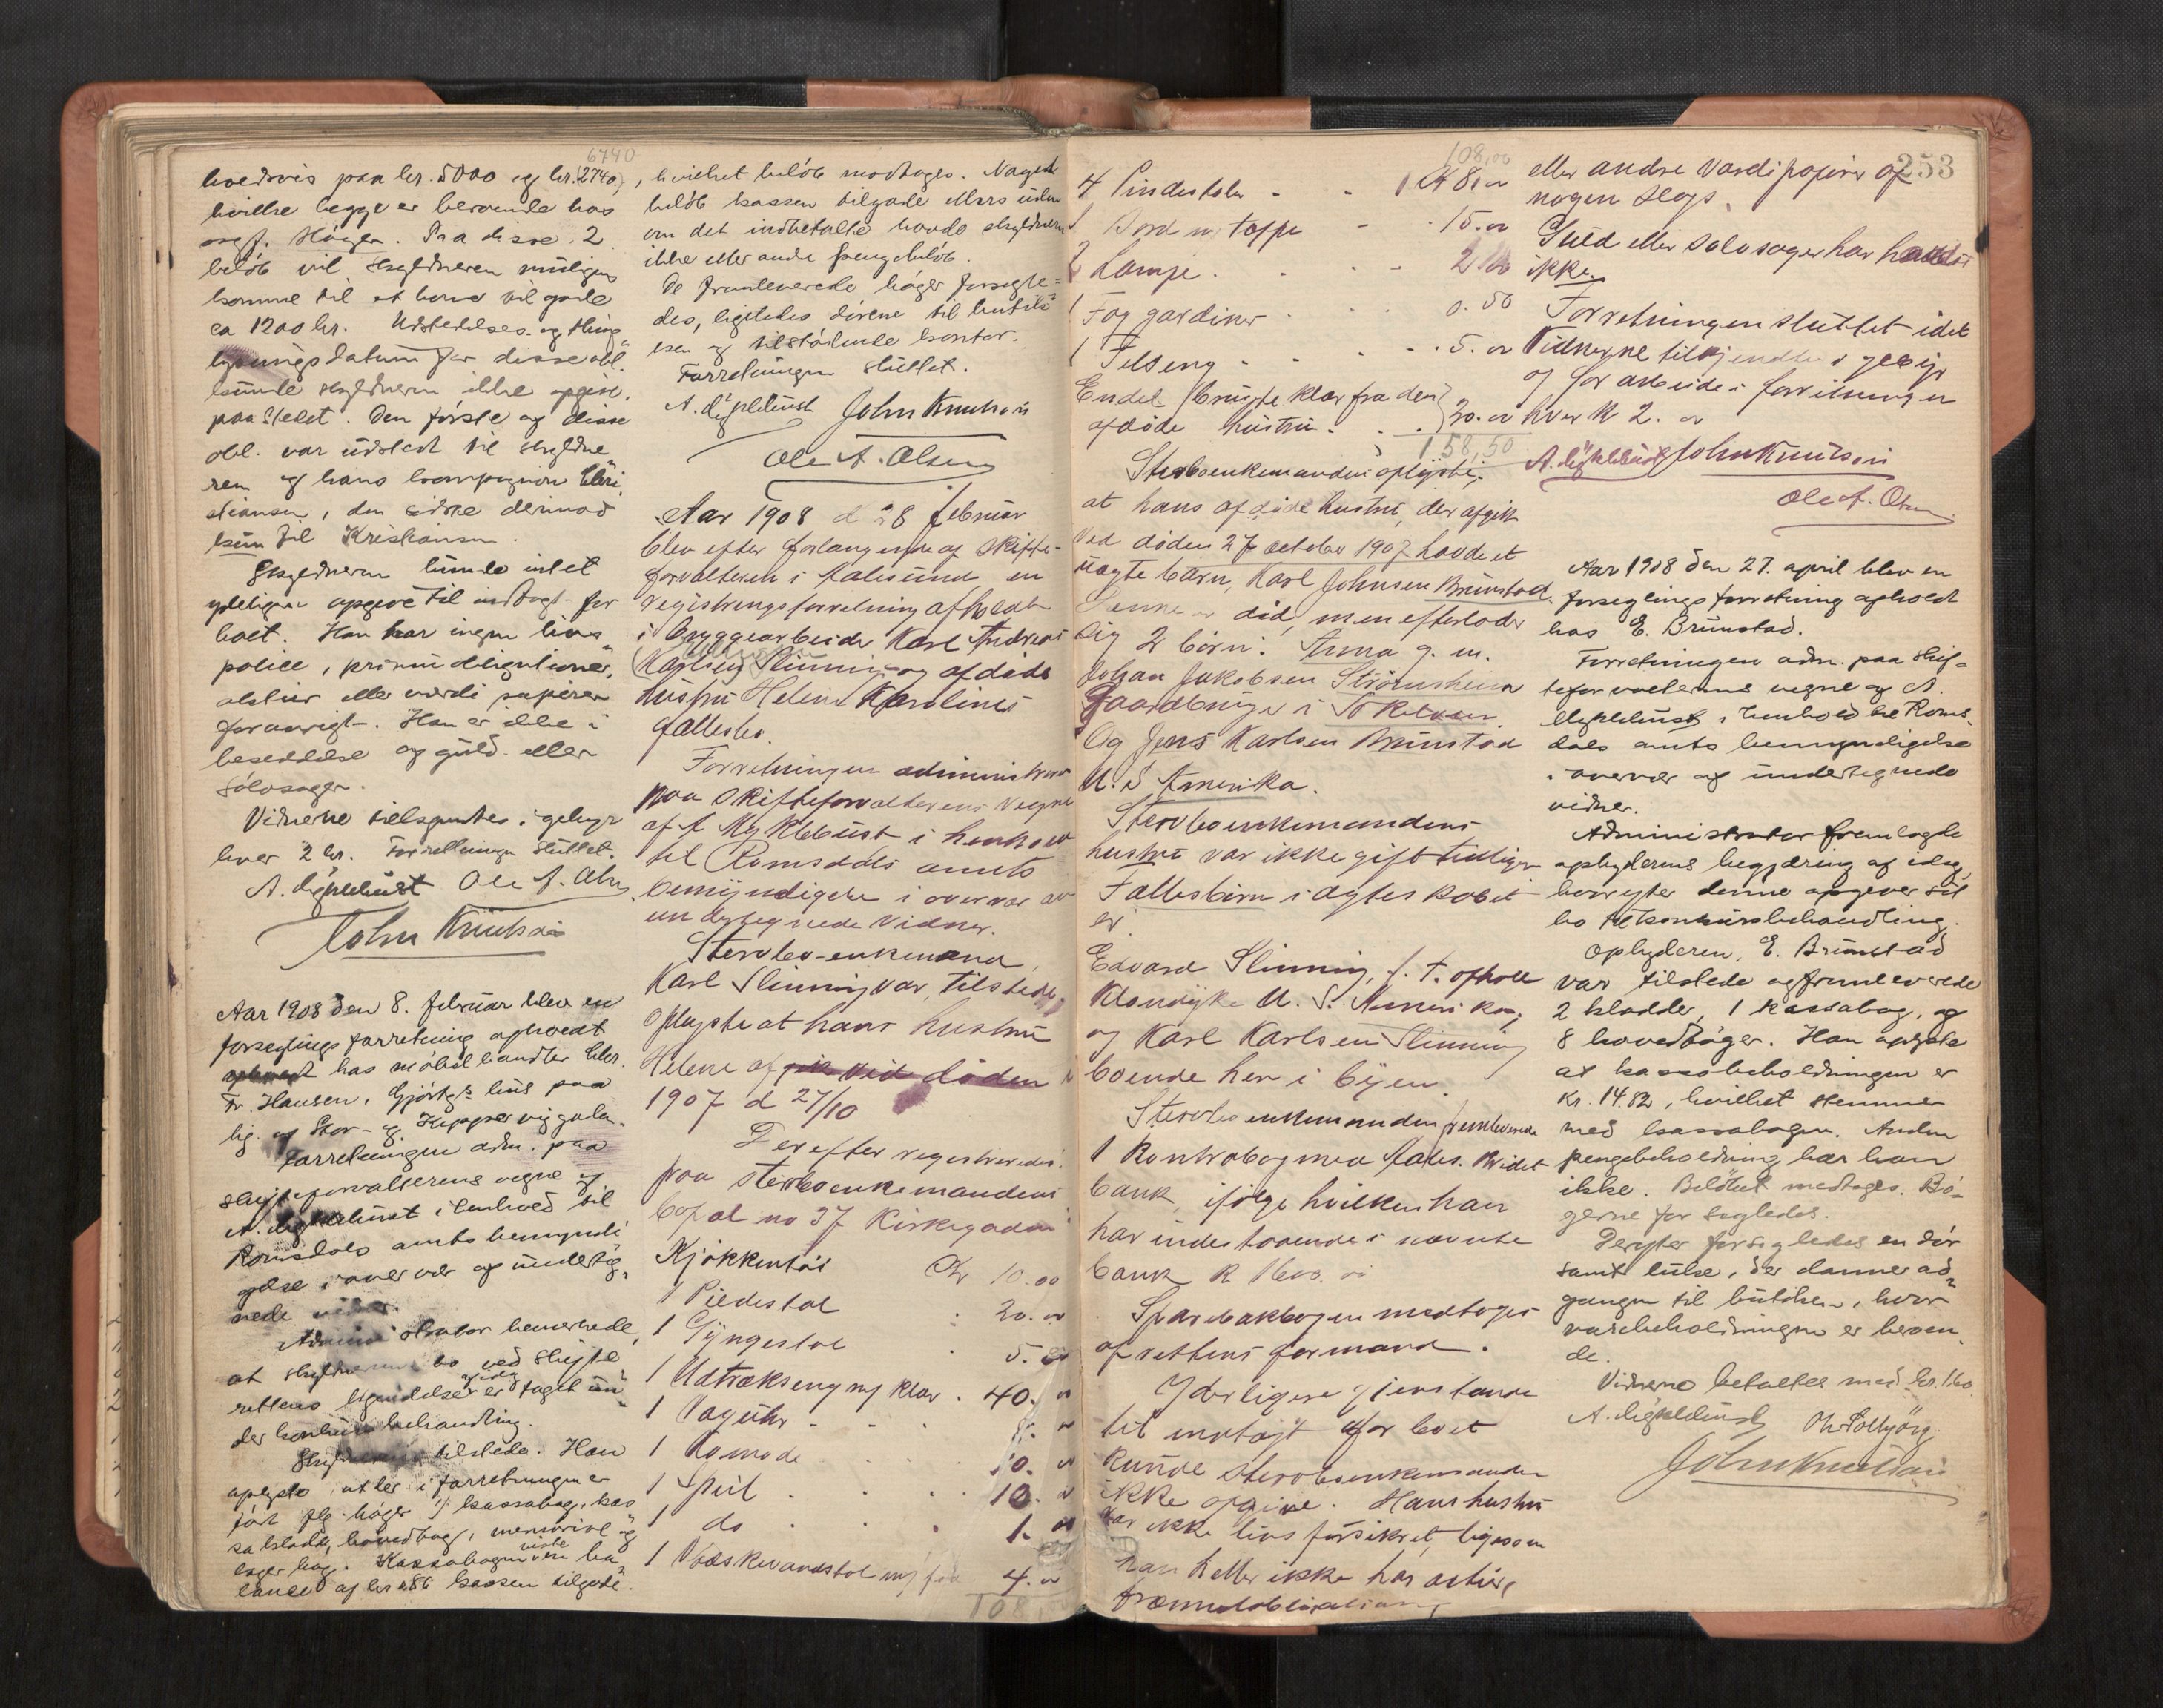 6740
hvedsvis paa kr. 5000 og kr. 2740,
hvilke begge er beroende hos
sagf. Höigen. Fra disse 2
beløb vil skyldneren muligens
komme til at have tilgode
ca 1200 kr. Udstedelses- og thing-
lysningsdatum for disse obl.
kunde skyldneren ikke opgive
paa stedet. Den første af disse
obl. var udstedt til skyldne-
ren og hans kompagnon Kri-
stiansen, den sidste derimod
kun til Kristiansen.
Skyldneren kunde intet
yderligere opgive til indtægt for
boet. Han har ingen livs-
police, præmieobligationer,
aktier eller værdipapirer
forøvrigt. Han er ikke i
besiddelse af guld- eller
sølvsager.
Vidnerne tilkjendtes i gebyr
hver 2 kr. Forretningen sluttet.
A. Myklebust Ole A. Olsen
John Knutsen
Aar 1908 den 8. februar blev en
forseglingsforretning afholdt
hos møbelhandler Chr.
Fr. Hansen,
lig. af Stor- og Kipperviggaden.
Forretningen adm. paa
skifteforvalterens vegne af
A. Myklebust i henhold til
Romsdals amts bemyndi-
gelse i overvær af underteg-
nede vidner.
Administrator bemerkede,
at skyldnerens bo ved skifte-
rettens kjendelse idag er taget un-
der konkursbehandling.
Skyldneren tilstede. Han
oplyste, at der i forretningen er
ført flg. bøger: 1 kassabog, kas-
sakladde, hovedbog, memorial og
lagerbog. Kassabogen viste ba-
lance af kr 2.86 kassen tilgode
, hvilket beløb modtoges. Nogetde
beløb kassen tilgode ellers uden
om det indbetalte havde skyldneren
ikke eller andre pengebeløb.
De fremleverede bøger forsegle-
des, ligeledes dørene til butik-
ken og tilstødende kontor.
Forretningen sluttet.
A. Myklebust John Knutsen
Ole A. Olsen
Aar 1908 d 28 februar
blev efter forlangende af skifte-
forvalteren i Aalesund en
registreringsforretning afholdt
i bryggearbeider Karl Andreas
Karlsen Slinning og afdøde
hustru Helene Karolines
fællesbo.
Forretningen administreres
paa skifteforvalterens vegne
af A Myklebust i henhold
til Romsdals amts
bemyndigelse i overvær av
undertegnede vidner.
Stervbo-enkemand
Karl Slinning var tilstede,
oplyste at hans hustru
Helene afgik ved døden
1907 d 27/10
Derefter registreredes
paa stervboenkemandens
bopæl no 37 Kirkegaden
Kjøkkentøi Kr 10.00
1 Piedestal : 20.00
1 Gyngestol 5.00
1 Udtrækseng m/ klær . 40.00
1 Vægur - - 8.-
1 Komode 10.00
1 Speil . . . 10.00
1 do . . . 1.00
1 Vaskevandstol m/ fad 4.00
108,00
108,00
4 Pindestoler - - 8.00
1 Bord m/ tæppe - - 15.00
1 Lampe . . . - 2.00
1 Fag gardiner . . . 0.50
1 Feltseng - . . . 5.00
Endel brugte klær fra den
afdøde hustru . . . 20.00
158,50
Stervboenkemanden oplyste,
at hans afdøde hustru, der afgik
ved døden 27 october 1907 havde et
uægte barn, Karl Johnsen Brunstad.
Denne er død, men efterlader
sig 2 børn: Anna g. m.
Johan Jakobsen Strømsheim
Gaardbruger i Sökelven.
Og Jens Karlsen Brunstad
U. S Amerika.
Stervboenkemandens
hustru var ikke gift tidligere
Fællesbørn i ægteskabet
er
Edvard Slinning, f. t. ophold
Klondyke U. S. Amerika,
og Karl Karlsen Slinning
boende her i byen
Stervboenkemanden fremleverede
1 Kontrabog med Aales. Kredit-
bank, ifølge hvilken han
har indestaaende i nævnte
bank K 1600.00
Sparebankbogen modtoges
af rettens formand.
Yderligere gjenstande
til indtægt for boet
kunde stervboenkemanden
ikke opgive. Hans hustru
var ikke livsforsikret, ligesom
han heller ikke har aktier,
præmieobligationer
253
eller andre værdipapirer af
nogen slags.
Guld eller sølvsager har han
ikke.
Forretningen sluttet idet
Vidnerne tilkjendtes i gebyr
og for arbeide i forretningen
hver K 2.00
A. Myklebust John Knutsen
Ole A. Olsen
Aar 1908 den 27. april blev en
forseglingsforretning afholdt
hos E. Brunstad.
Forretningen adm. paa skif-
teforvalterens vegne af A.
Myklebust i henhold til Roms-
dals amts bemyndigelse
i overvær af undertegnede
vidner.
Administrator fremlagde
opbyderens begjæring af idag,
hvorefter denne opgiver sit
bo til konkursbehandling.
Opbyderen, E. Brunstad
var tilstede og fremleverede
2 kladder, 1 kassabog, og
8 hovedbøger. Han oplyste
at kassabeholdningen er
Kr. 14.82, hvilket stemmer
med kassabogen. Anden
pengebeholdning har han
ikke. Beløbet modtoges. Bø-
gerne forsegledes.
Derefter forsegledes en dør
samt luke, der danner ad-
gangen til butiken, hvor
varebeholdningen er beroen-
de.
Vidnerne betaltes med kr. 1.60
A. Myklebust Ole Solbjørg
John Knutsen